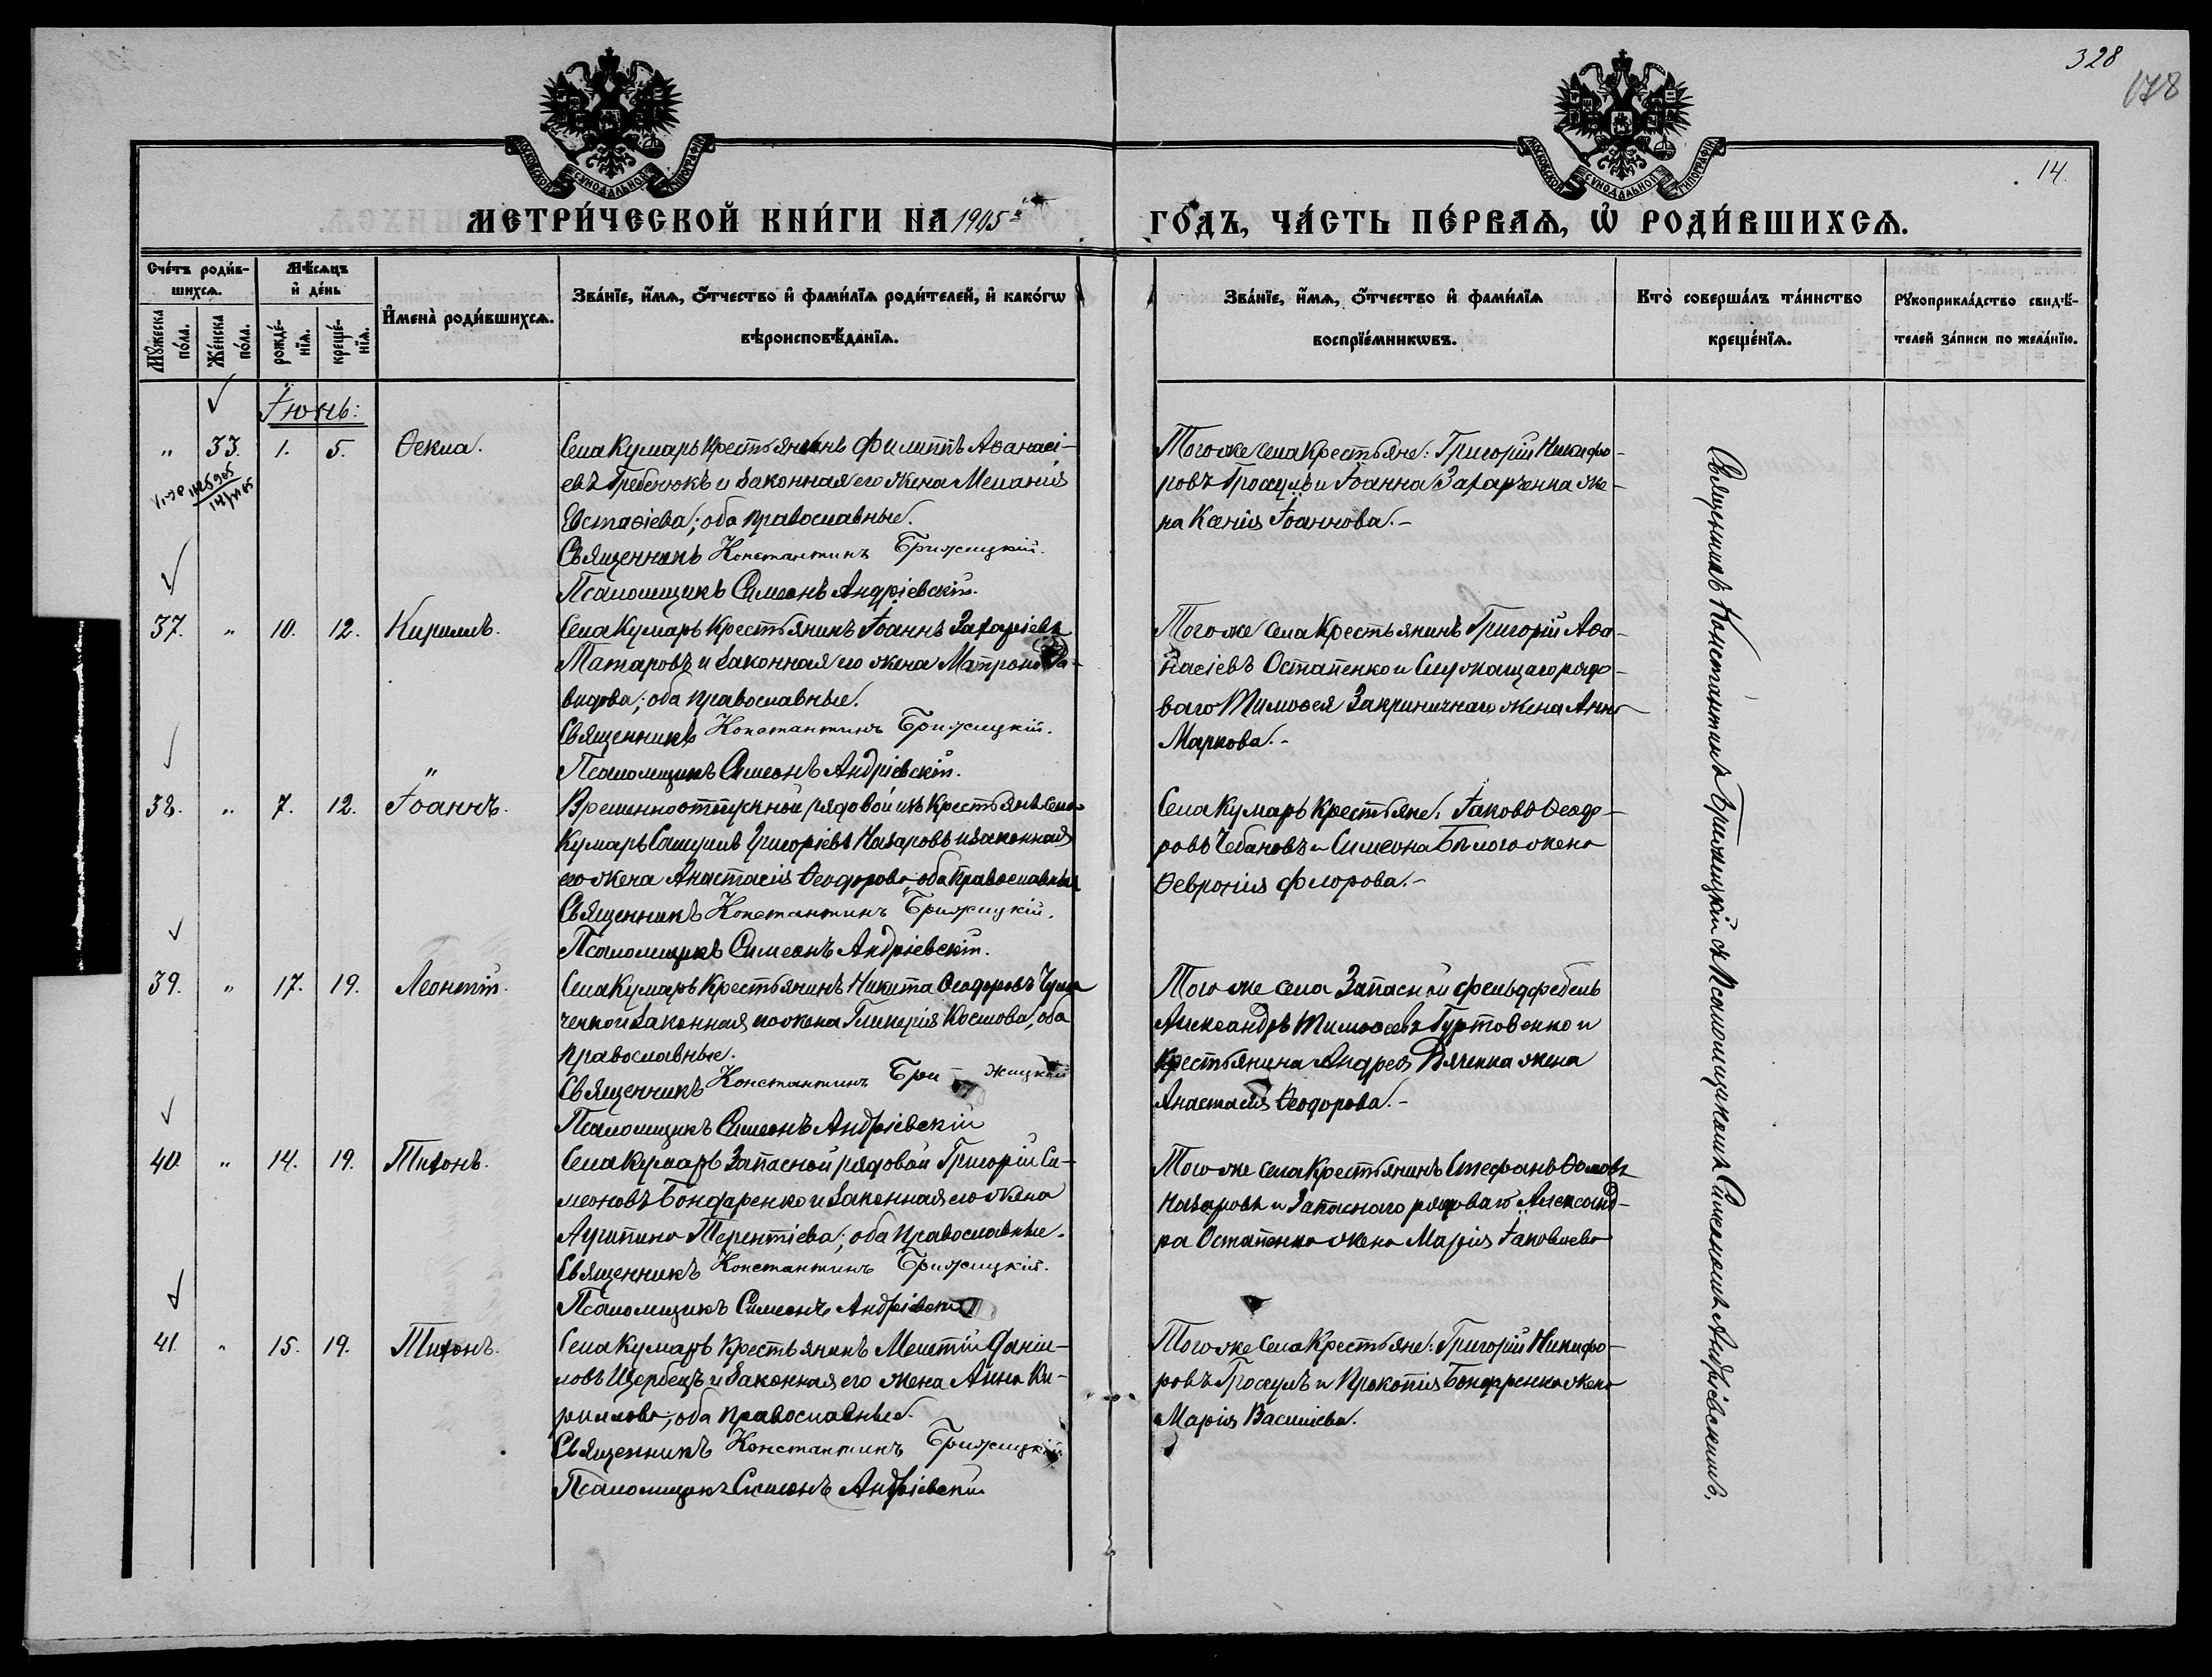 328
178
14.
МОСКОВСКОЙ СѴНОДАЛЬНОЙ ТИПОГРАФІИ
МОСКОВСКОЙ СѴНОДАЛЬНОЙ ТИПОГРАФІИ
МЕТРИ́ЧЕСКОЙ КНИ́ГИ НА 1905й
ГО́ДЪ, ЧА́СТЬ ПЕ́РВАѦ, Ѡ҆ РОДИ́ВШИХСѦ.
Сче́тъ роди́в-
шихсѧ.
Мꙋ́жеска по́ла.
Же́нска по́ла.
Мѣ́сѧцъ
и҆ де́нь
рожде́-
нїѧ.
креще́-
нїѧ.
И҆мена̀ роди́вшихсѧ.
Зва́нїе, и҆́мѧ, ѻ҆́тчество и҆ фами́лїѧ роди́телей, и҆ како́гѡ
вѣроисповѣ́данїѧ.
Зва́нїе, и҆́мѧ, ѻ҆́тчество и҆ фами́лїѧ
воспрїе́мникѡвъ.
Кто̀ соверша́лъ та́инство
креще́нїѧ.
Рꙋкоприкла́дство свидѣ́-
телей за́писи по жела́нїю.
Іюнь:
" 33. 1. 5. Ѳекла.
Села Кумаръ крестьянинъ Филиппъ Аѳанасі-
евъ Гребенюкъ и законная его жена Меланія
Евстаѳіева; оба православные.
Священникъ Константинъ Брижицкій.
Псаломщикъ Симеонъ Андріевскій.
Того же села крестьяне: Григорій Никифо-
ровъ Гроссулъ и Іоанна Захарченка же-
на Ксенія Іоаннова.-
37. " 10. 12. Кириллъ.
Села Кумаръ крестьянинъ Іоаннъ Захаріевъ
Татаровъ и законная его жена Матрона Да-
видова; оба православные.
Священникъ Константинъ Брижицкій.
Псаломщикъ Симеонъ Андріевскій.
Того же села крестьянинъ Григорій Аѳа-
насіевъ Остапенко и служащаго рядо-
ваго Тимоѳея Закриничнаго жена Анна
Маркова.-
38. " 7. 12. Іоаннъ.
Временноотпускной рядовой изъ крестьянъ села
Кумаръ Самуилъ Григоріевъ Назаровъ и законная
его жена Анастасія Ѳеодорова оба православные
Священникъ Константинъ Брижицкій.
Псаломщикъ Симеонъ Андріевскій.
Села Кумаръ крестьяне: Іаковъ Ѳеодо-
ровъ Чебановъ и Симеона Бѣлого жена
Ѳевронія Флорова.-
39. " 17. 19. Леонтій.
Села Кумаръ крестьянинъ Никита Ѳеодоровъ
и законная его жена Гликерія Космова, оба
православные.
Священникъ Константинъ Бри-жицкій
Псаломщикъ Симеонъ Андріевскій
Того же села Запасной фельдфебель
Александръ Тимоѳеевъ Гуртовенко и
крестьянина Андрея жена
Анастасія Ѳеодорова.-
40. " 14. 19. Тихонъ.
Села Кумаръ Запасной рядовой Григорій Си-
меоновъ Бондаренко и законная его жена
Агрипина Терентіева; оба православные.
Священникъ Константинъ Брижицкій.
Псаломщикъ Симеонъ Андріевскій
Того же села крестьянинъ Стефанъ Ѳомовъ
Назаровъ и Запасного рядоваго Александ-
ра Остапенка жена Марія Іаковлева
41. " 15. 19. Тихонъ.
Села Кумаръ крестьянинъ Мелетій Даніи-
ловъ Щербецъ и законная его жена Анна Ки-
риллова; оба православные.
Священникъ Константинъ Брижицкій
Псаломщикъ Симеонъ Андріевскій
Того же села крестьяне: Григорій Никифо-
ровъ Гроссулъ и Прокопія Бондаренка жена
Марія Василіева.
Священникъ Константинъ Брижицкій съ Псаломщикомъ Симеономъ Андріевскимъ.